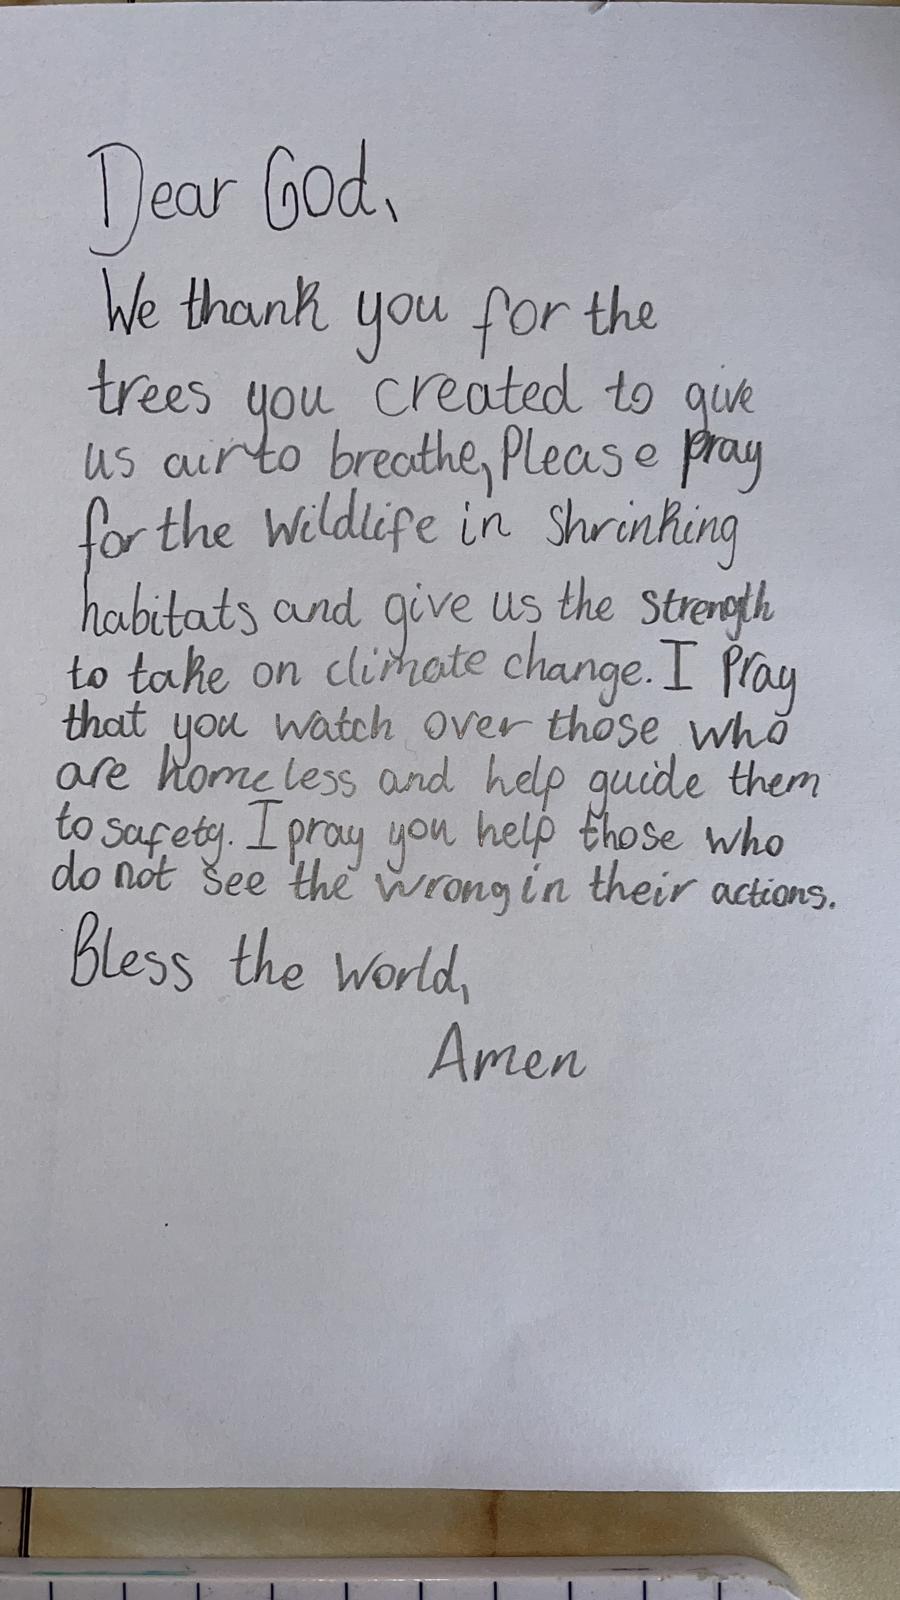 Dear God,
We thank you for the
trees you created to give
us air to breathe, Please pray
for the wildlife in shrinking
habitats and give us the strength
to take on climate change. I pray
that you watch over those who
are homeless and help guide them
to safety. I pray you help those who
do not see the wrong in their actions.
Bless the world,
Amen